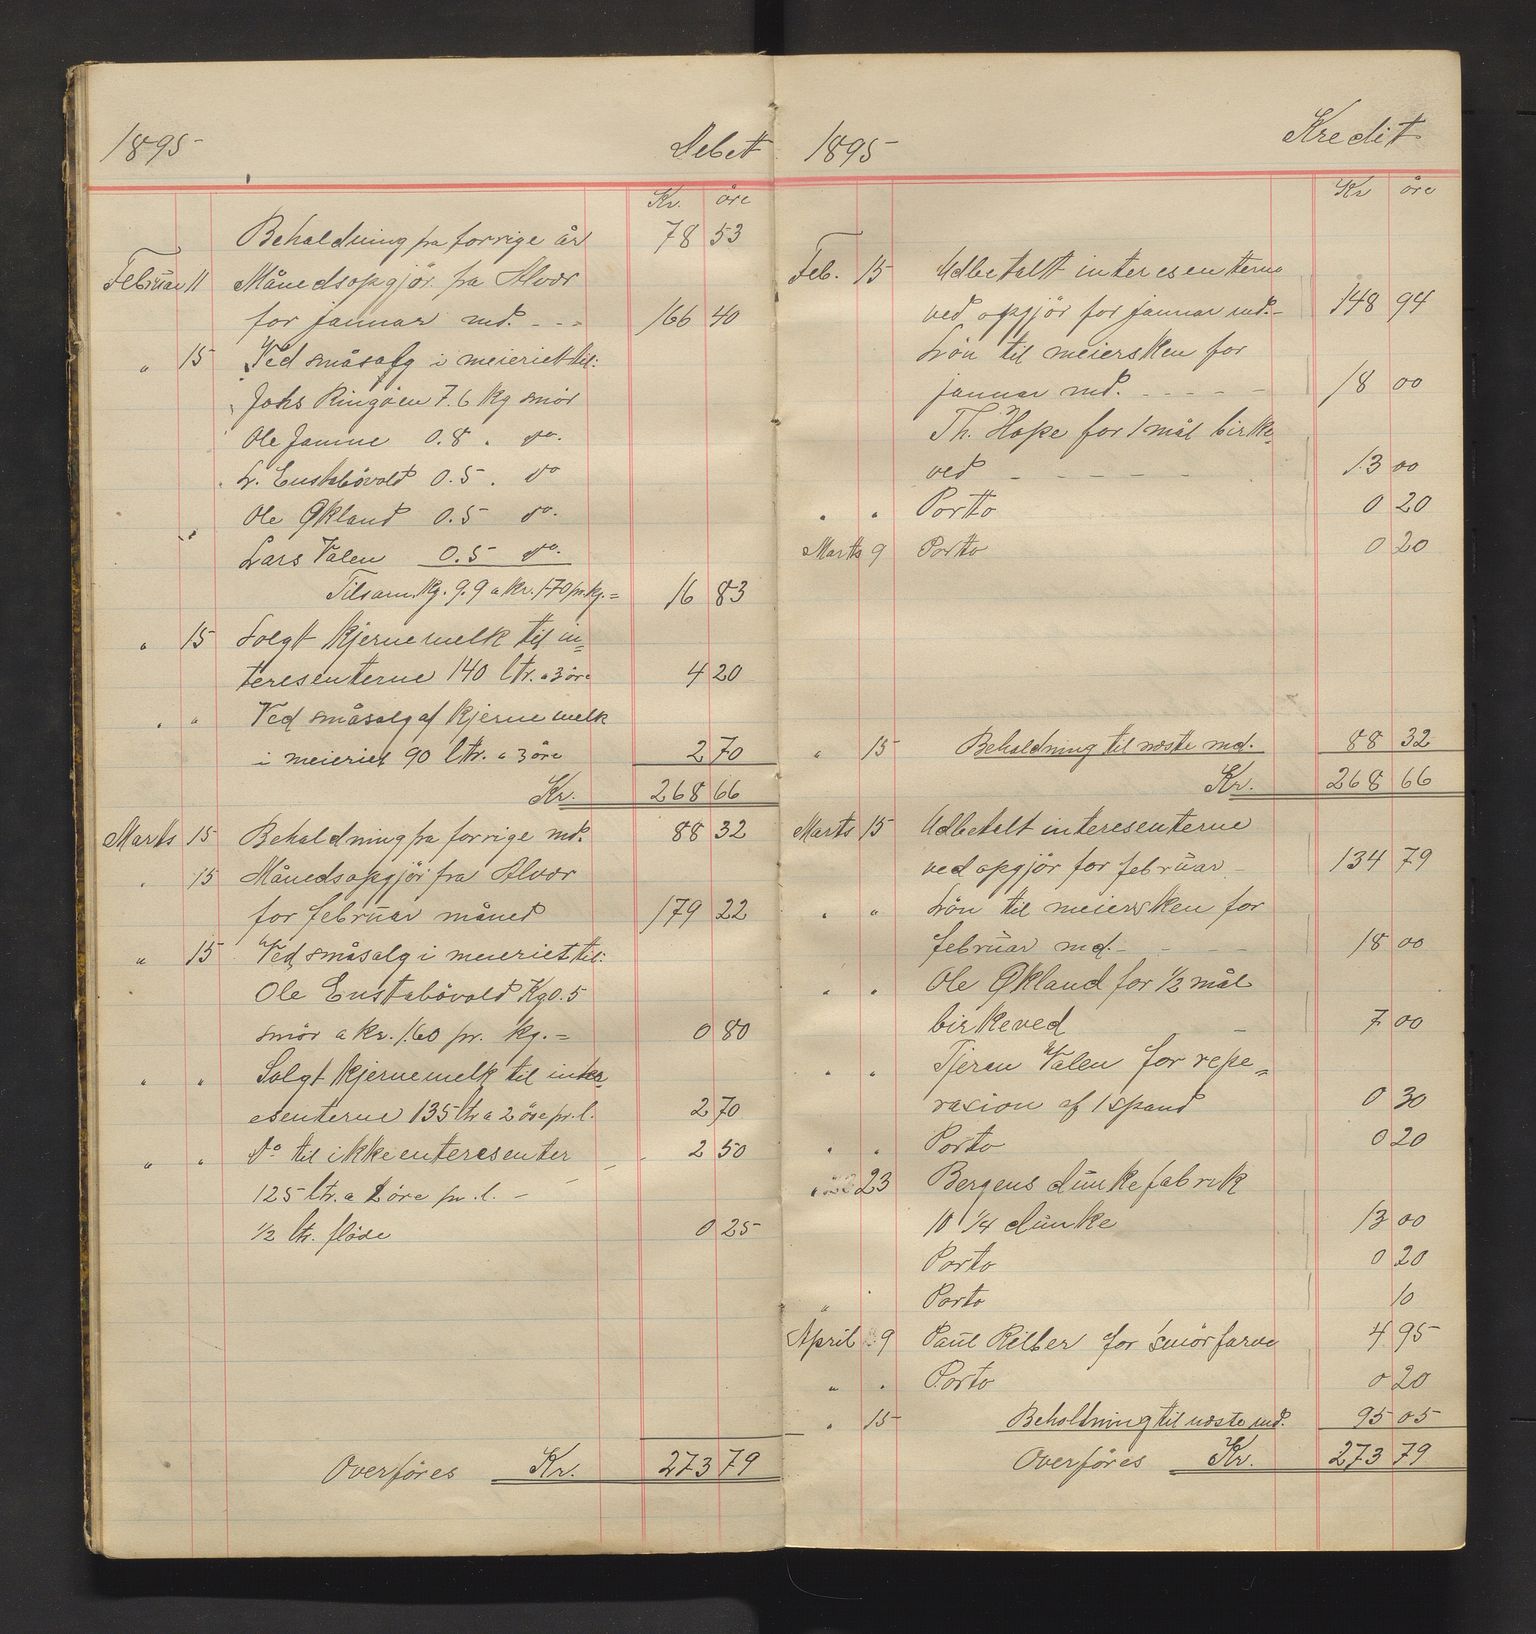 1895
Debet
Kr. öre
Behaldning fra forrige år 78 53
Februar 11 Månedsopgjör fra Alvær
for januar md. - - - 166 40
" 15 Ved småsalg i meieriet til:
Johs Ringöen 7.6 kg smör
Ole Jamne 0.8 " do.
L. Eustabövold 0.5 . do
Ole Økland 0.5 do.
Lars Valen 0.5 do.
Tilsam. kg. 9.9 a kr. 1.70 pr. kg. = 16 83
" 15 Solgt kjernemelk til in=
teresenterne 140 ltr. a 3 öre 4 20
" " Ved småsalg af kjernemelk
i meieriet 90 ltr. a 3 öre 2 70
Kr. 268 66
Marts 15 Behaldning fra forrige md. 88 32
" 15 Månedsopgjör fra Alvær
for februar måned 179 22
" 15 Ved småsalg i meieriet til:
Ole Eustabövold Kg 0.5
smör a kr. 1.60 pr. kg. = 0 80
" " Solgt kjernemelk til inter
esenterne 135 ltr a 2 öre pr. l. 2 70
" " do til ikke enteresenter 2 50
125 ltr. a 2 öre pr. l. -
1/2 ltr. flöde 0 25
Overföres Kr. 273 79
1895
Kredit
Kr öre
Feb. 15 Udbetalt interesenterne
ved opgjör for januar md. - 148 94
Lön til meiersken for
januar md. - - - - - 18 00
Th. Hope for 1 mål birke=
ved - - - - - 13 00
" " Porto 0 20
Marts 9 Porto 0 20
" 15 Behaldning til næste md. 88 32
Kr. 268 66
Marts 15 Udbetalt interesenterne
ved opgjör for februar - 134 79
" " Lön til meiersken for
februar md. - - - 18 00
" " Ole Økland for 1/2 mål
birkeved - 7 00
" " Tjeran Valen for repe=
rasion af 1 spand 0 30
" " Porto 0 20
23 Bergens dunkefabrik
10 1/4 dunke 13 00
Porto 0 20
" " Porto 10
April 9 Paul Rilber for smörfarve 4 95
" " Porto 0 20
" 15 Beholdning til næste md. 95 05
Overföres Kr. 273 79